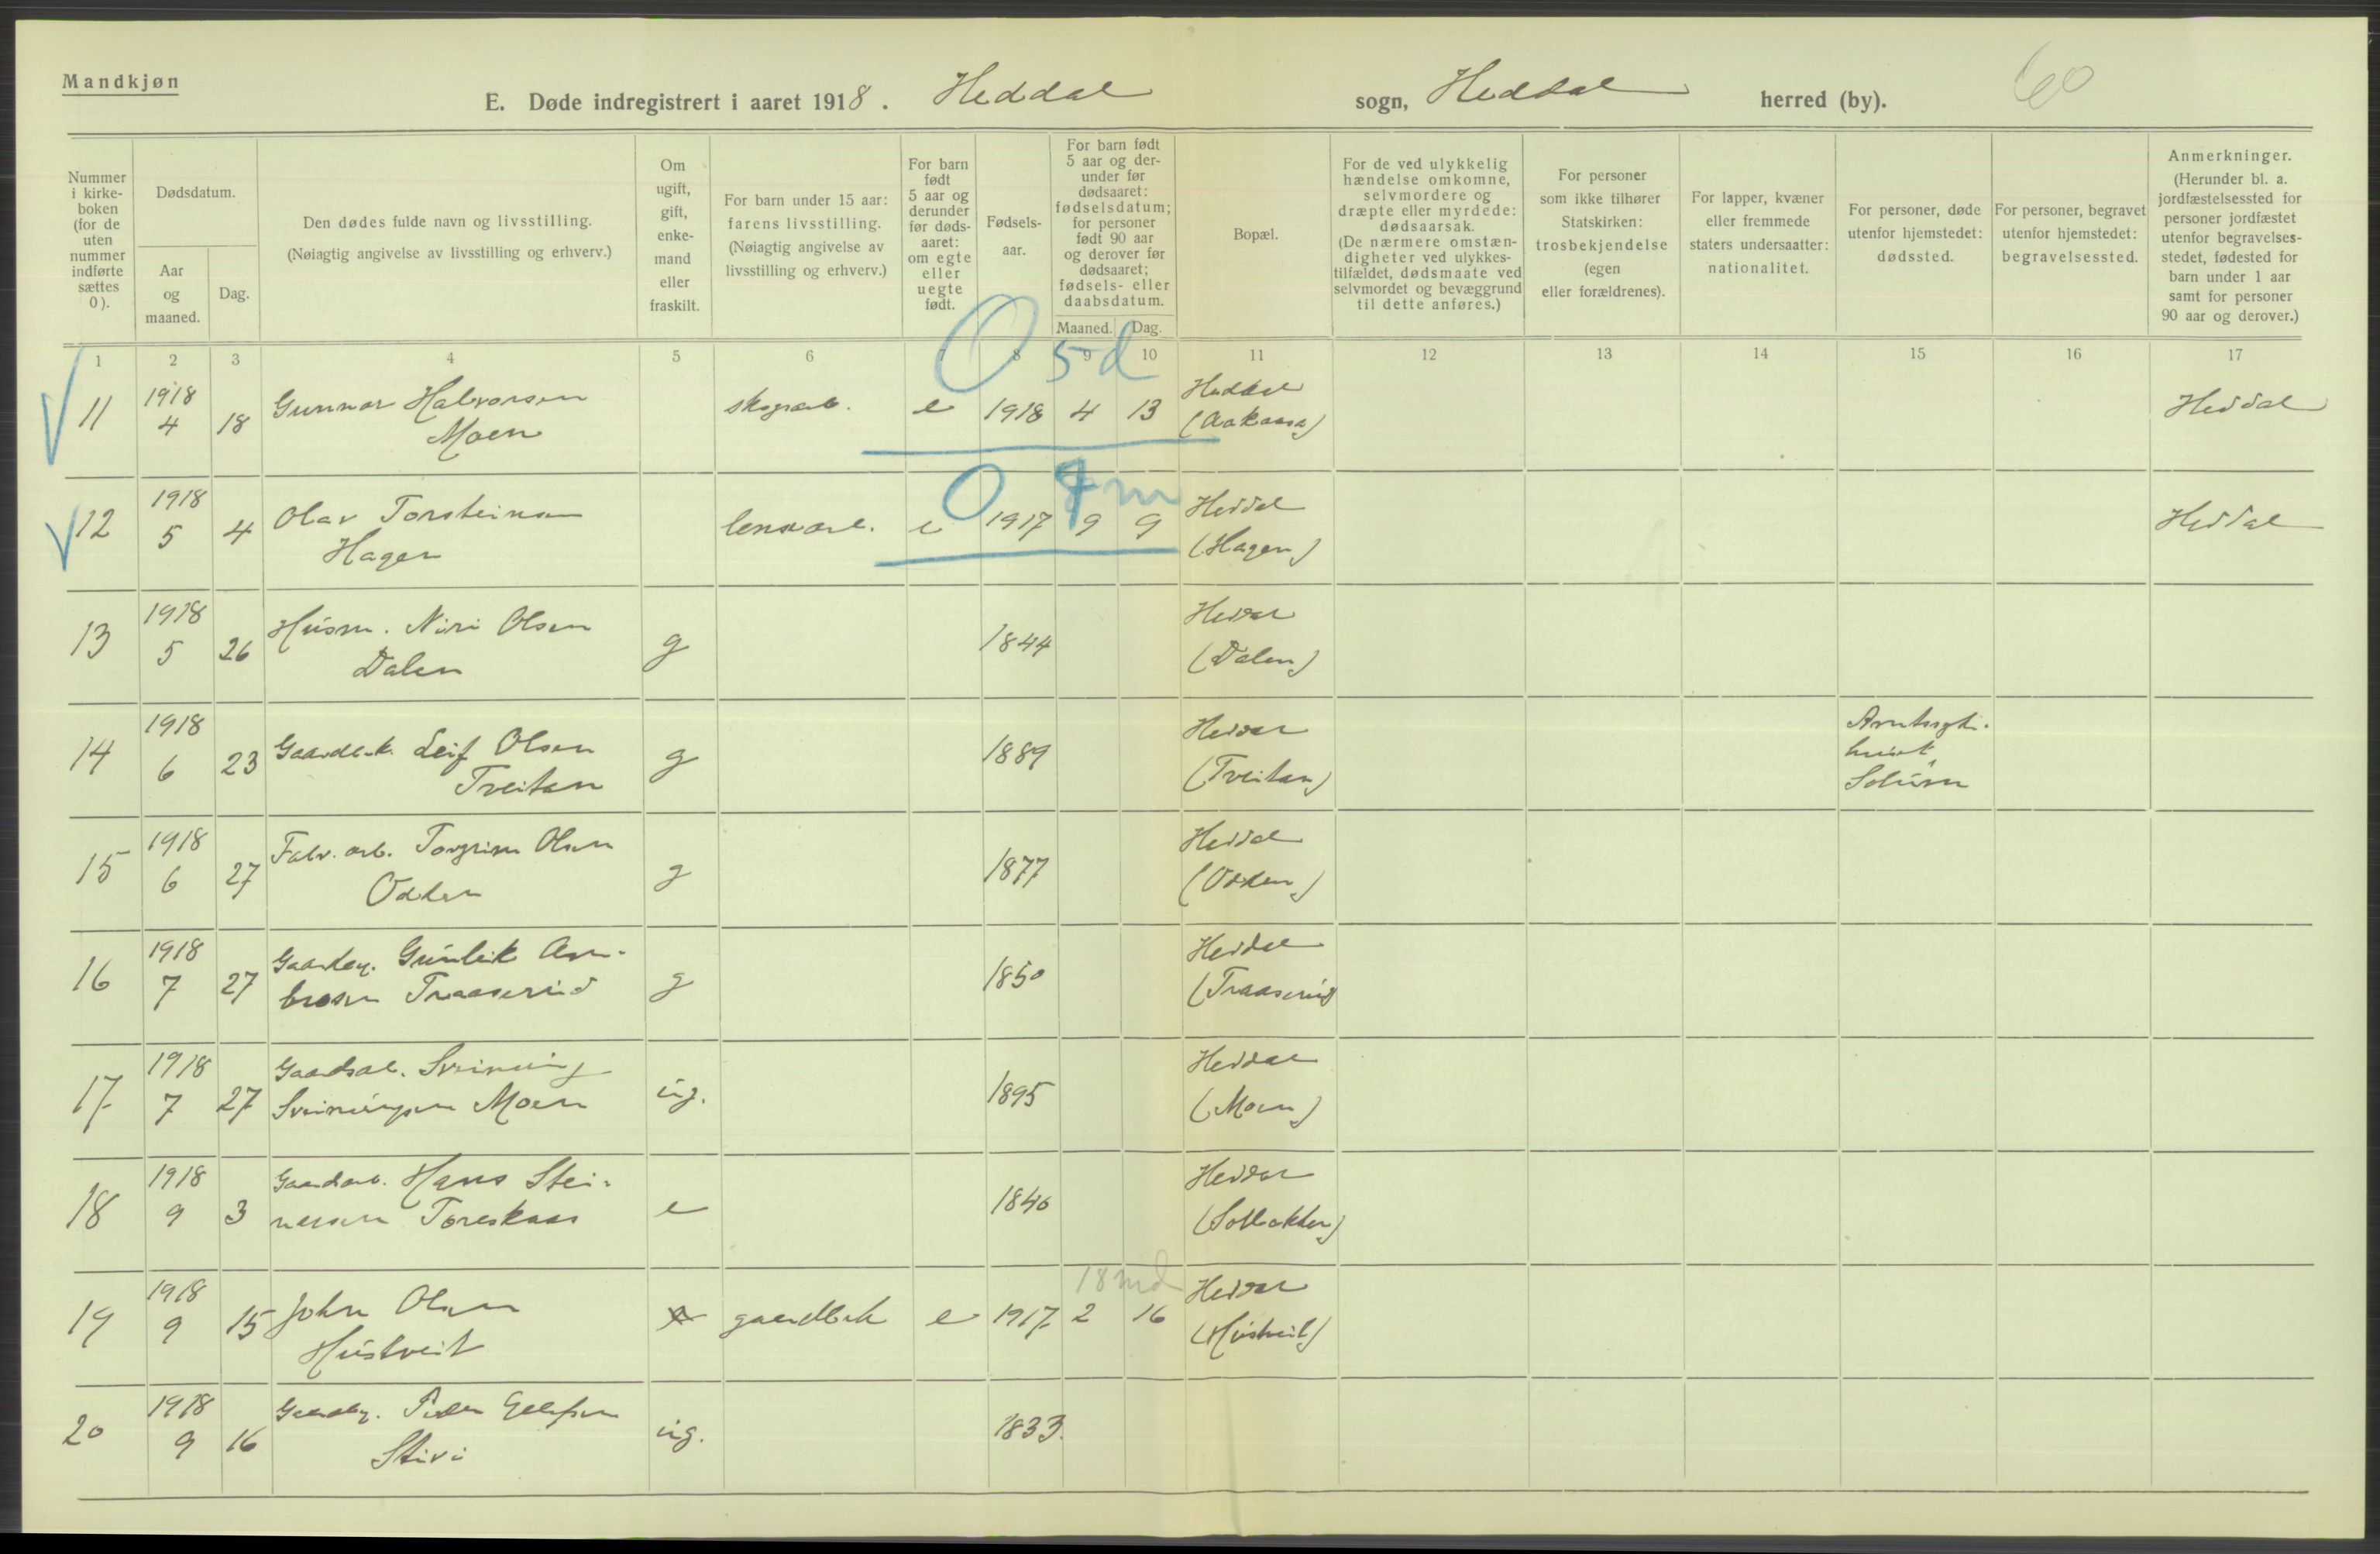 Mandkjøn
E. Døde indregistrert i aaret 1918. Heddal sogn, Heddal herred (by). 60
Nummer i kirke-boken (for de uten nummer indførte sættes 0).
Dødsdatum.
Aar og maaned.
Dag.
Den dødes fulde navn og livsstilling.
(Nøiagtig angivelse av livsstilling og erhverv.)
Om ugift, gift, enke-mand eller fraskilt.
For barn under 15 aar: farens livsstilling. (Nøiagtig angivelse av livsstilling og erhverv.)
For barn født 5 aar og derunder før døds-aaret: om egte eller uegte født.
Fødsels-aar.
For barn født 5 aar og der-under før dødsaaret: fødselsdatum; for personer født 90 aar og derover før dødsaaret; fødsels- eller daabsdatum.
Maaned. Dag.
Bopæl.
For de ved ulykkelig hændelse omkomne, selvmordere og dræpte eller myrdede: dødsaarsak. (De nærmere omstæn-digheter ved ulykkes-tilfældet, dødsmaate ved selvmordet og bevæggrund til dette anføres.)
For personer som ikke tilhører Statskirken: trosbekjendelse (egen eller forældrenes).
For lapper, kvæner eller fremmede staters undersaatter: nationalitet.
For personer, døde utenfor hjemstedet: dødssted.
For personer, begravet utenfor hjemstedet: begravelsessted.
Anmerkninger. (Herunder bl. a. jordfæstelsessted for personer jordfæstet utenfor begravelses-stedet, fødested for barn under 1 aar samt for personer 90 aar og derover.)
1 2 3 4 5 6 7 8 9 10 11 12 13 14 15 16 17
0 5 d
11 1918 4 18 Gunnar Halvorsen Moen skogarb. e 1918 4 13 Heddal Heddal
0 m
12 1918 5 4 Olav Torsteinsen Hagen e 1917 9 9 Heddal (Hagen) Heddal
13 1918 5 26 Husm. Olsen Dalen g 1844 Heddal (Dalen)
14 1918 6 23 Gaardbr. Leif Olsen Tveitan g 1889 Heddal (Tveitan) Solum
15 1918 6 27 Fabr. arb. Torgrim Olsen Odden g 1877 Heddal (Odden)
16 1918 7 27 Gunleik Am-
brosen Traaserud g 1850 Heddal (Traaserud
17 1918 7 27 Sveinung
Sveinungsen Moen ug. 1895 Heddal (Moen)
18 1918 9 3 Gaardarb. Hans Stei-
nersen Toreskaas e 1840 Heddal
18 md
19 1918 9 15 John Olsen Hustveit gaardbr. e 1917 2 16 Heddal (Hustveit)
20 1918 9 16 Peder Stivi ug. 1833.